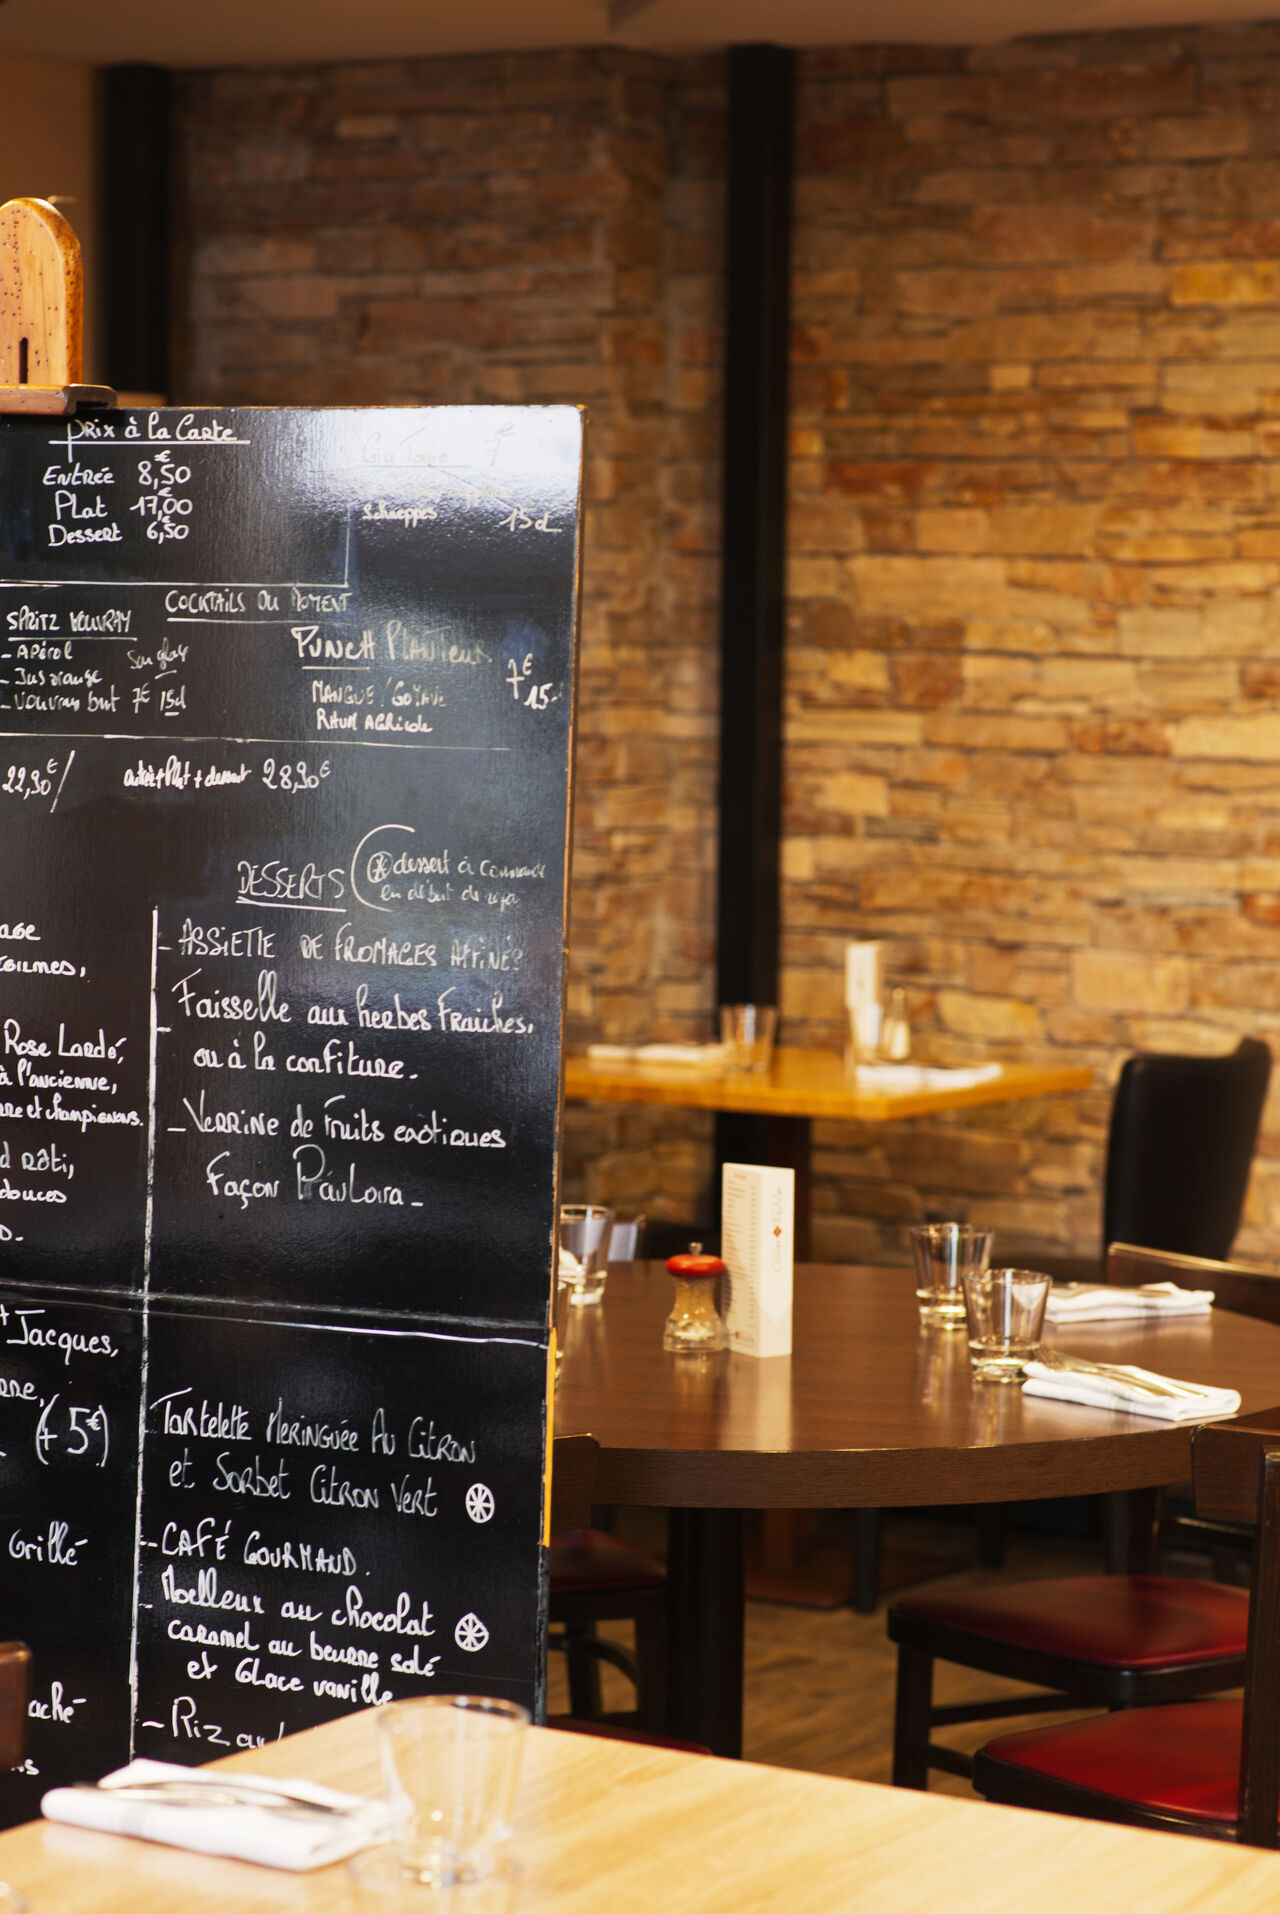 Prix à la Carte
Entrée 8,50€
Plat 17,00€
Dessert 6,50€
Gin Tonic 7€
Schweppes 15cl
COCKTAILS DU MOMENT
SPRITZ VOUVRAY
- APérol
- Jus orange
- Vouvray brut 7€ 15cl
PUNCH PLANTEUR
7€
MANGUE/GOYAVE
15
RHUM AGRicole
22,90€/ entrée+Plat+dessert 28,90€
DESSERTS
dessert à commande
en début de repas
AGE
ÉGUMES,
Rose Lardé,
à l'ancienne,
rre et champignons.
d Rôti,
douces
D.
- ASSIETTE DE FROMAGES AFFINÉS
- Faisselle aux herbes Fraiches,
ou à la confiture.
- Verrine de Fruits exotiques
Façon Pavlova -
t Jacques,
(+ 5€)
Grillé
aché
- Tartelette Meringuée Au Citron
et Sorbet Citron Vert
- CAFÉ GOURMAND.
- Moelleux au chocolat
caramel au beurre salé
et Glace vanille
- Riz au